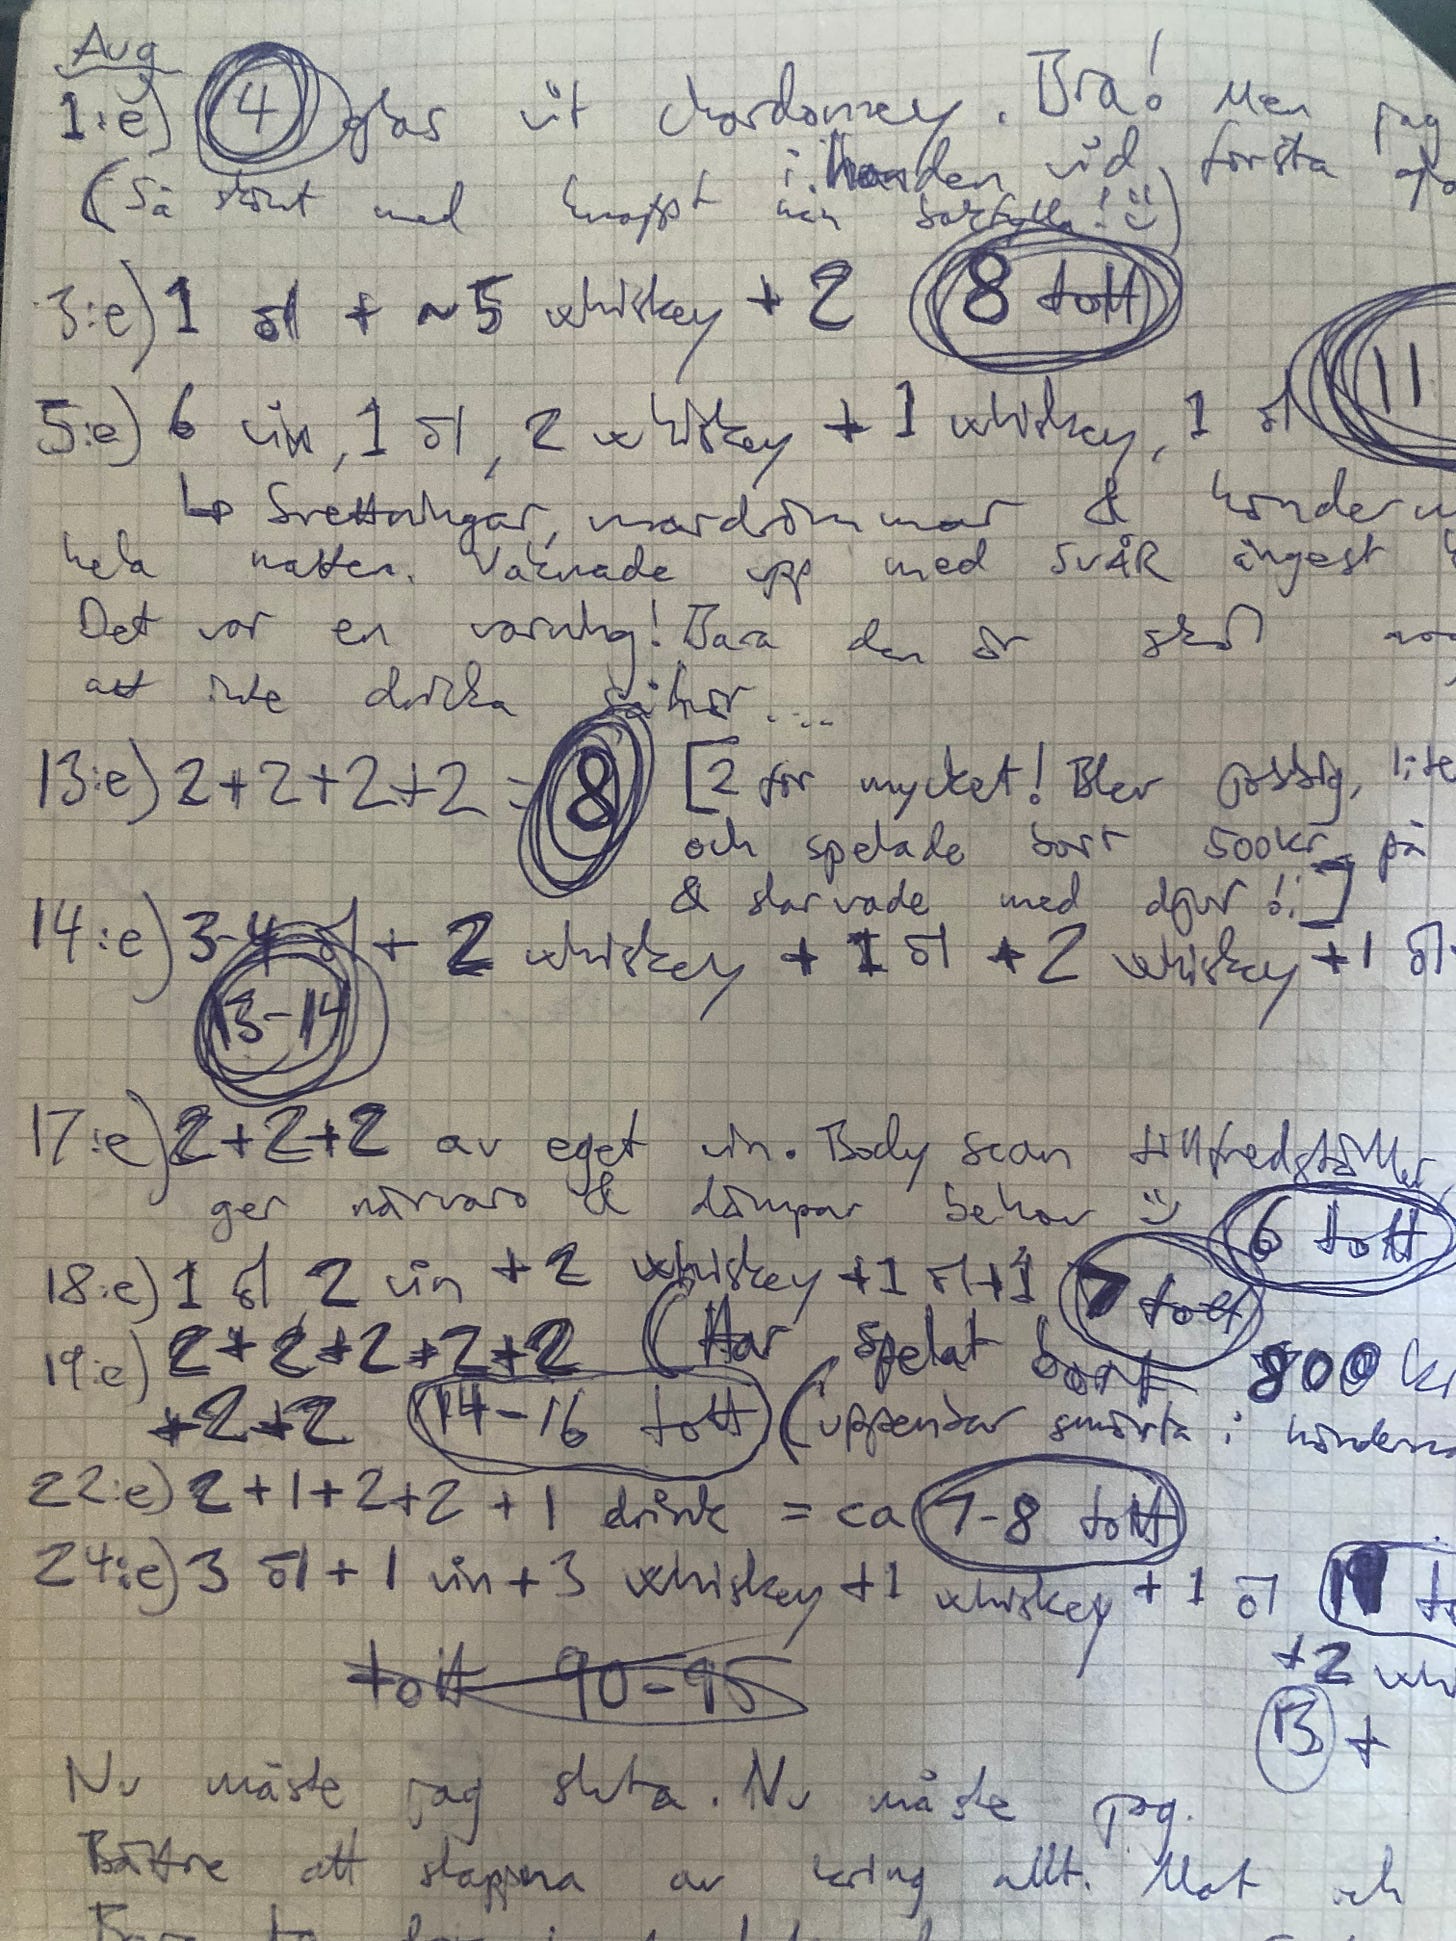 Aug
1:e) 4 glas vit chardonney. Bra! Men jag
i handen vid första
(Så skönt med knappt nån bakfylla! :))
3:e) 1 öl + ~5 whiskey + 2 8 tott
5:e) 6 vin, 1 öl, 2 whiskey + 1 whiskey, 1 öl 11
↳ Svettningar, mardrömmar &
hela natten. Vaknade upp med SVÅR ångest
Det var en varning! Bara den är skäl
att inte dricka såhär....
13:e) 2+2+2+2 = 8 [2 för mycket! Blev
och spelade bort 500kr på
& slarvade med djur!:]
14:e) 3-4 öl + 2 whiskey + 1 öl + 2 whiskey + 1 öl
13-14
17:e) 2+2+2 av eget vin. Body scan tillfredställer,
ger närvaro & dämpar behov :)
6 tott
18:e) 1 öl, 2 vin + 2 whiskey + 1 öl + 1 7 tott
19:e) 2+2+2+2+2 (Har spelat bort 800 kr
+2+2 14-16 tott (uppenbar smärta i
22:e) 2+1+2+2+1 drink = ca 7-8 tott
24:e) 3 öl + 1 vin + 3 whiskey + 1 whiskey + 1 öl
+2
tott 90-95
13 +
Nu måste jag sluta. Nu måste jag.
Bättre att slappna av kring allt. Mat och